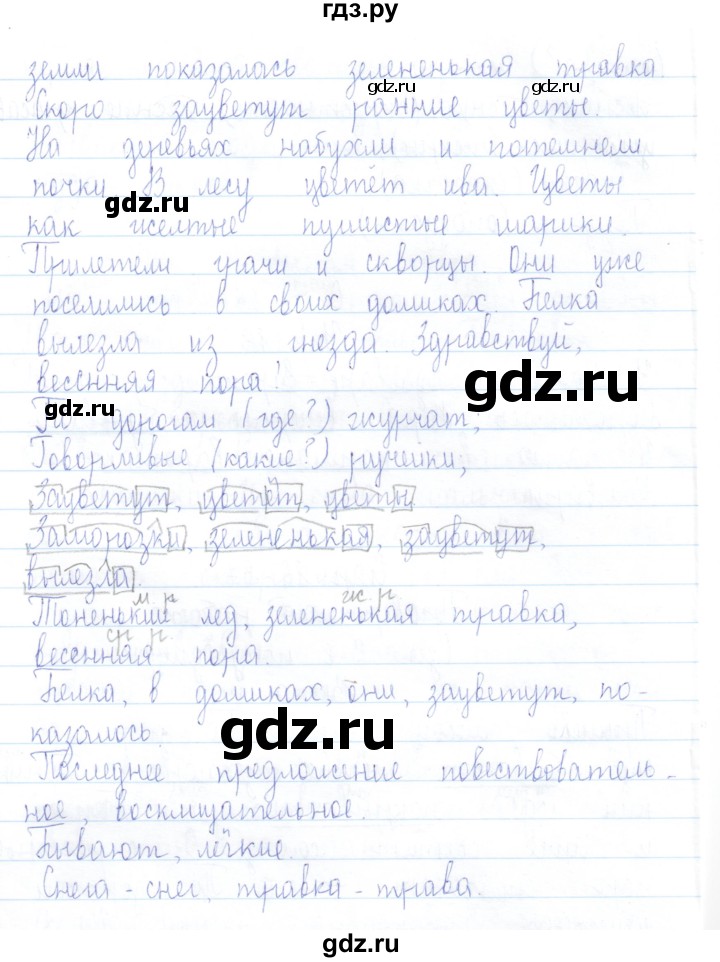 гдз.ру
земли показалась зелененькая травка.
Скоро зацветут ранние цветы.
На деревьях набухли и потемнели
почки. В лесу цветёт ива. Цветы
как желтые пушистые шарики.
Прилетели грачи и скворцы. Они уже
поселились в своих домиках. Белка
вылезла из гнезда. Здравствуй,
весенняя пора!
По дорогам (где?) журчат;
Говорливые (какие?) ручейки;
Зацветут, цветёт, цветы.
Заморозки, зелененькая, зацветут,
вылезла.
м. р. ж. р.
Тоненький лед, зелененькая травка,
ср. р.
весенняя пора.
Белка, в домиках, они, зацветут, по-
казалось.
Последнее предложение повествователь-
ное, восклицательное.
Бывают, лёгкие.
Снега - снег, травка - трава.
gdz.ru
gdz.ru
gdz.ru
gdz.ru
gdz.ru
gdz.ru
gdz.ru
gdz.ru